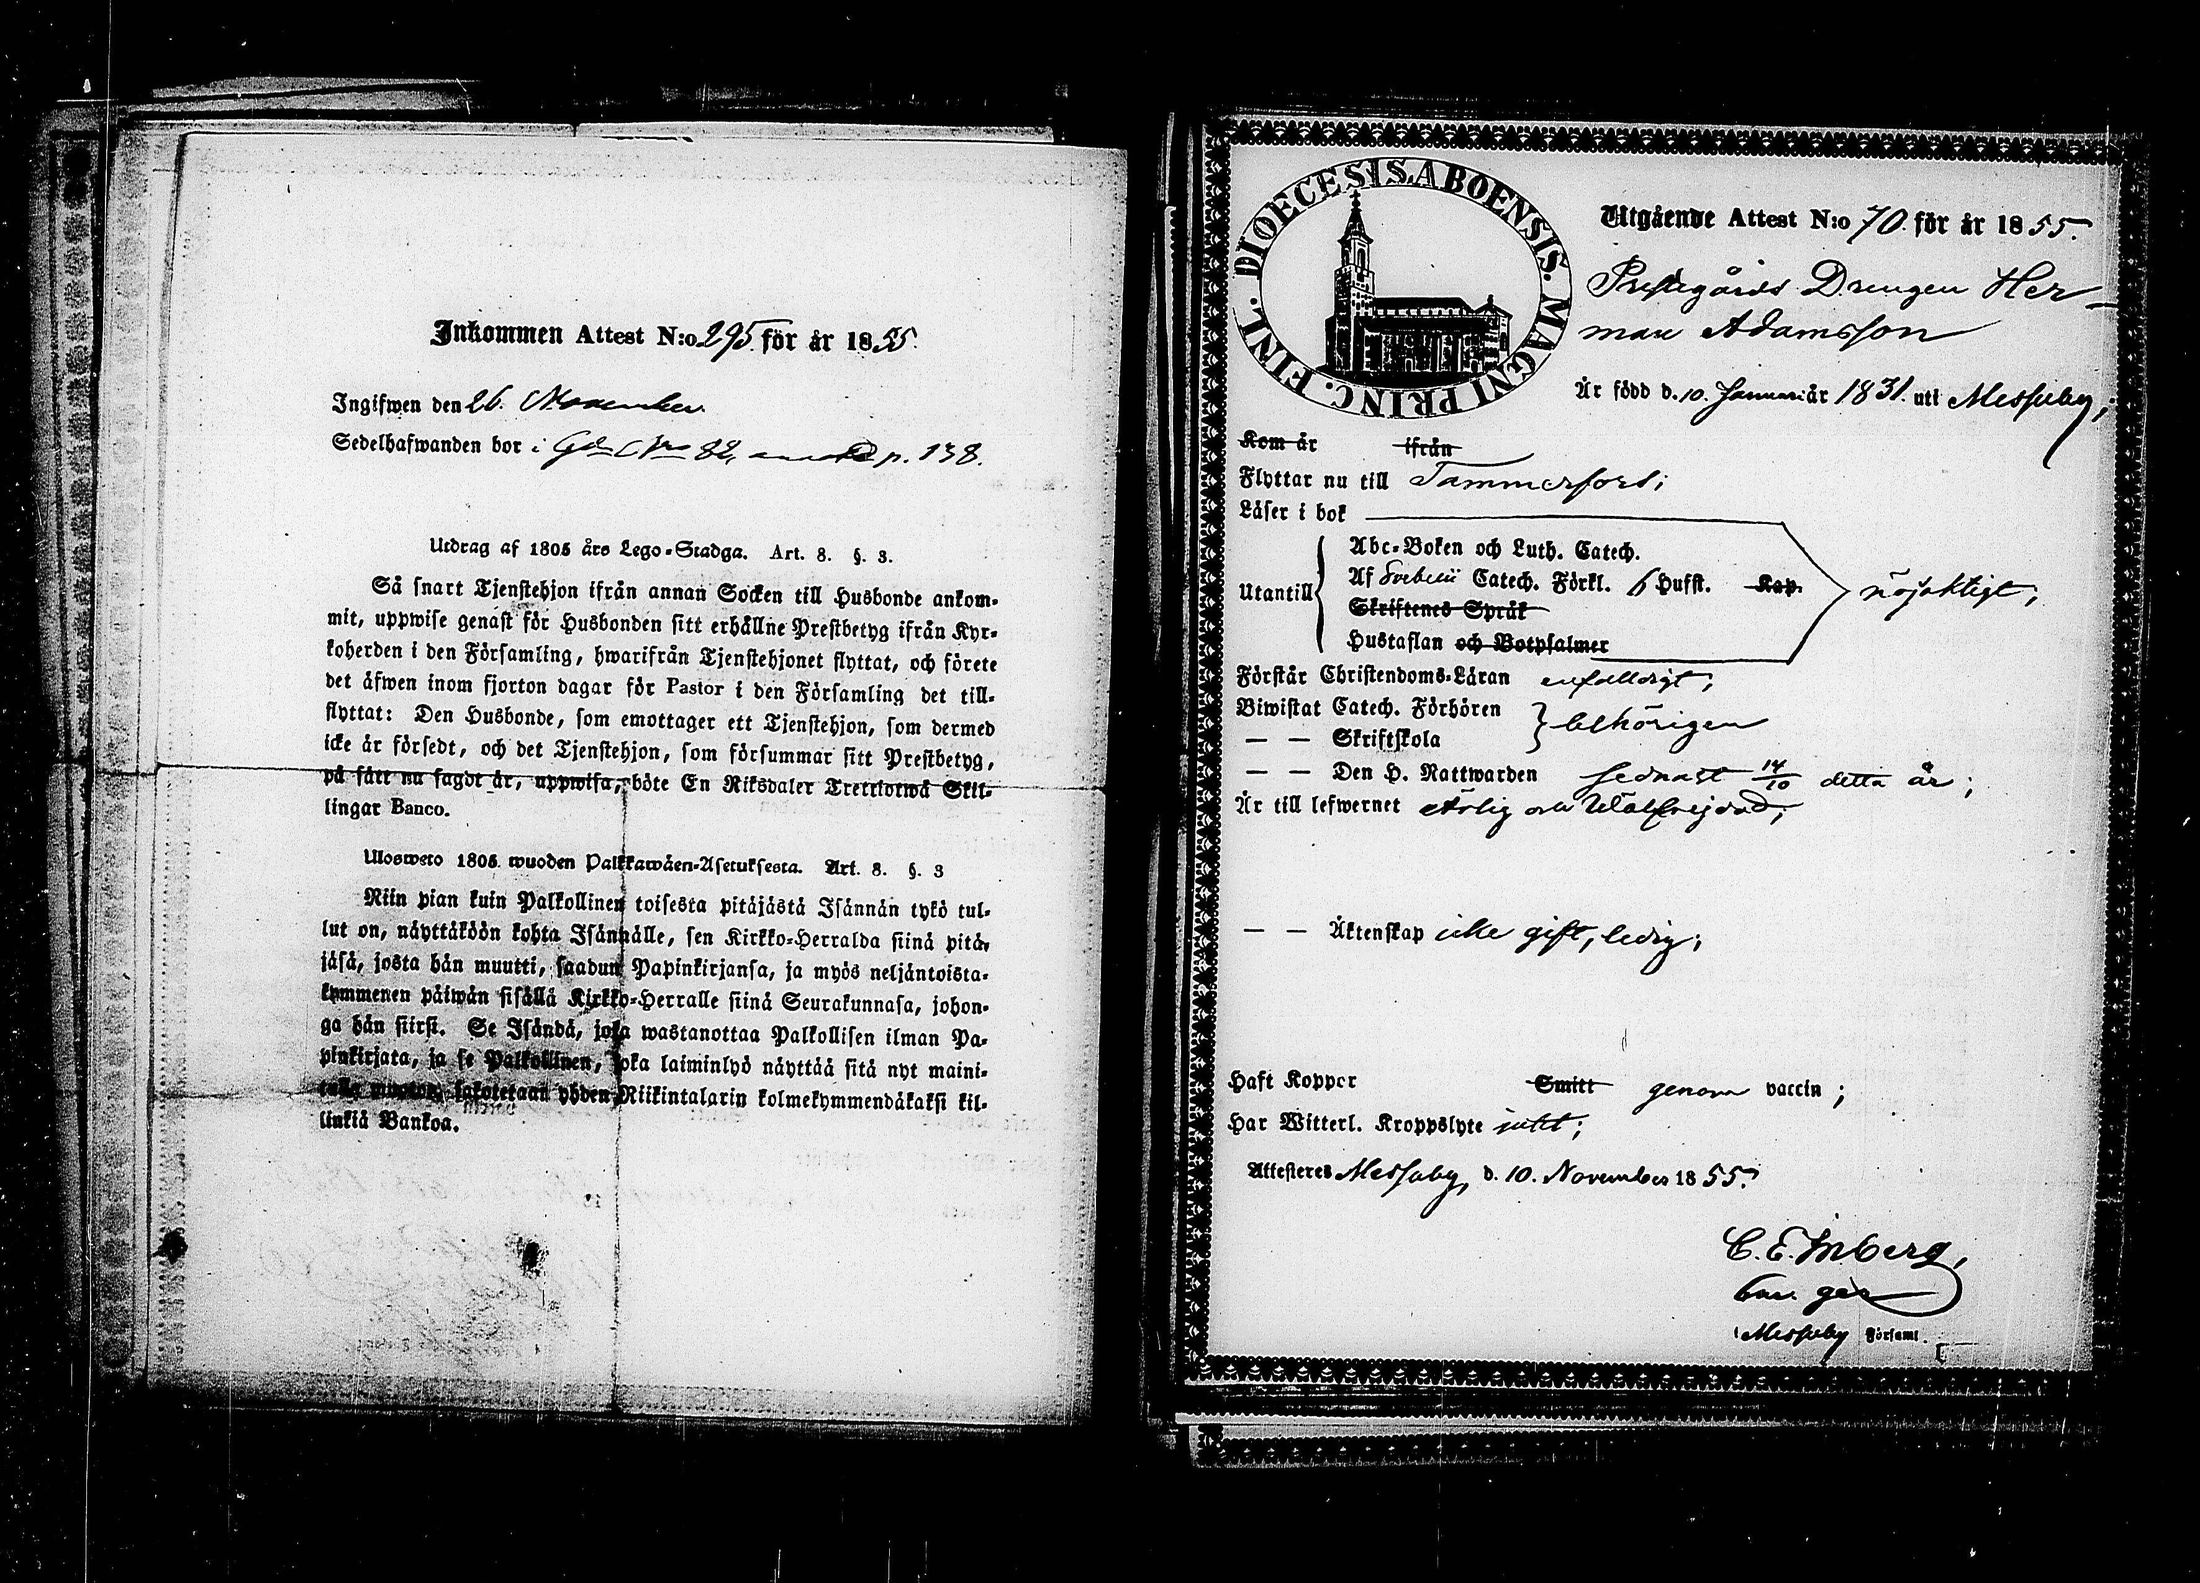 Inkommen Attest N:o 295 för år 1855.
Ingifwen den 26. November.
Sedelhafwanden bor i Gd No 82, p. 138.
Utdrag af 1805 års Lego-Stadga. Art. 8. §. 3.
Så snart Tjenstehjon ifrån annan Socken till Husbonde ankom-
mit, uppwise genast för Husbonden sitt erhållne Prestbetyg ifrån Kyr-
koherden i den Församling, hwarifrån Tjenstehjonet flyttat, och förete
det äfwen inom fjorton dagar för Pastor i den Församling det till-
flyttat: Den Husbonde, som emottager ett Tjenstehjon, som dermed
icke är försedt, och det Tjenstehjon, som försummar sitt Prestbetyg,
på sätt nu sagdt är, uppwisa, böte En Riksdaler Trettiotwå Skil-
lingar Banco.
Ulosweto 1805 wuoden Palkkawäen-Asetuksesta. Art. 8. §. 3
Niin pian kuin Palkollinen toisesta pitäjästä Isännän tykö tul-
lut on, näyttäköön kohta Isännälle, sen Kirkko-Herralda siinä pitä-
jäsä, josta hän muutti, saadun Papinkirjansa, ja myös neljäntoista-
kymmenen päiwän sisällä Kirkko-Herralle siinä Seurakunnasa, johon-
ga hän siirsi. Se Isändä, joka wastanottaa Palkollisen ilman Pa-
pinkirjata, ja se Palkollinen, joka laiminlyö näyttää sitä nyt maini-
tulla muotoa, sakotetaan yhden Riikintalarin kolmekymmendäkaksi kil-
linkiä Bankoa.
DIOECESIS ABOENSIS. MAGNI PRINC. FINL.
Utgående Attest N:o 70. för år 1855.
Prestegårds Drengen Her-
man Adamsson
Är född d. 10. Januari år 1831. uti Messuby;
Kom år ifrån
Flyttar nu till Tammerfors;
Läser i bok
Abc-Boken och Luth. Catech.
Utantill Af Svebelii Catech. Förkl. 6 Hufst. Kap. nöjaktigt;
Skriftenes Språk
Hustaflan och Botpsalmer
Förstår Christendoms-Läran enfaldigt;
Biwistat Catech. Förhören
— — Skriftskola behörigen
— — Den H. Nattwarden sednast 14/10 detta år;
Är till lefwernet ärlig och wälfrejdad;
— — Äktenskap icke gift, ledig;
Haft Koppor Smitt genom vaccin;
Har Witterl. Kroppslyte intet;
Attesteres Messuby, d. 10. November 1855.
C. E. Inberg,
i Messuby Församl.